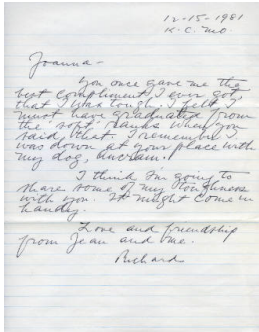 12-15-1981
K.C. Mo.
Joanna -
You once gave me the
best compliment I ever got,
that I was tough. I felt I
must have graduated from
the "soft" ranks when you
said that. I remember I
was down at your place with
my dog,
I think I'm going to
share some of my toughness
with you. It might come in
handy.
Love and friendship
from Jean and me.
Richard